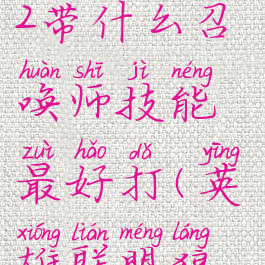 2带什么召
huàn shī jì néng
唤师技能
zuì hǎo dǎ yīng
最好打(英
xióng lián méng láng
雄联盟狼